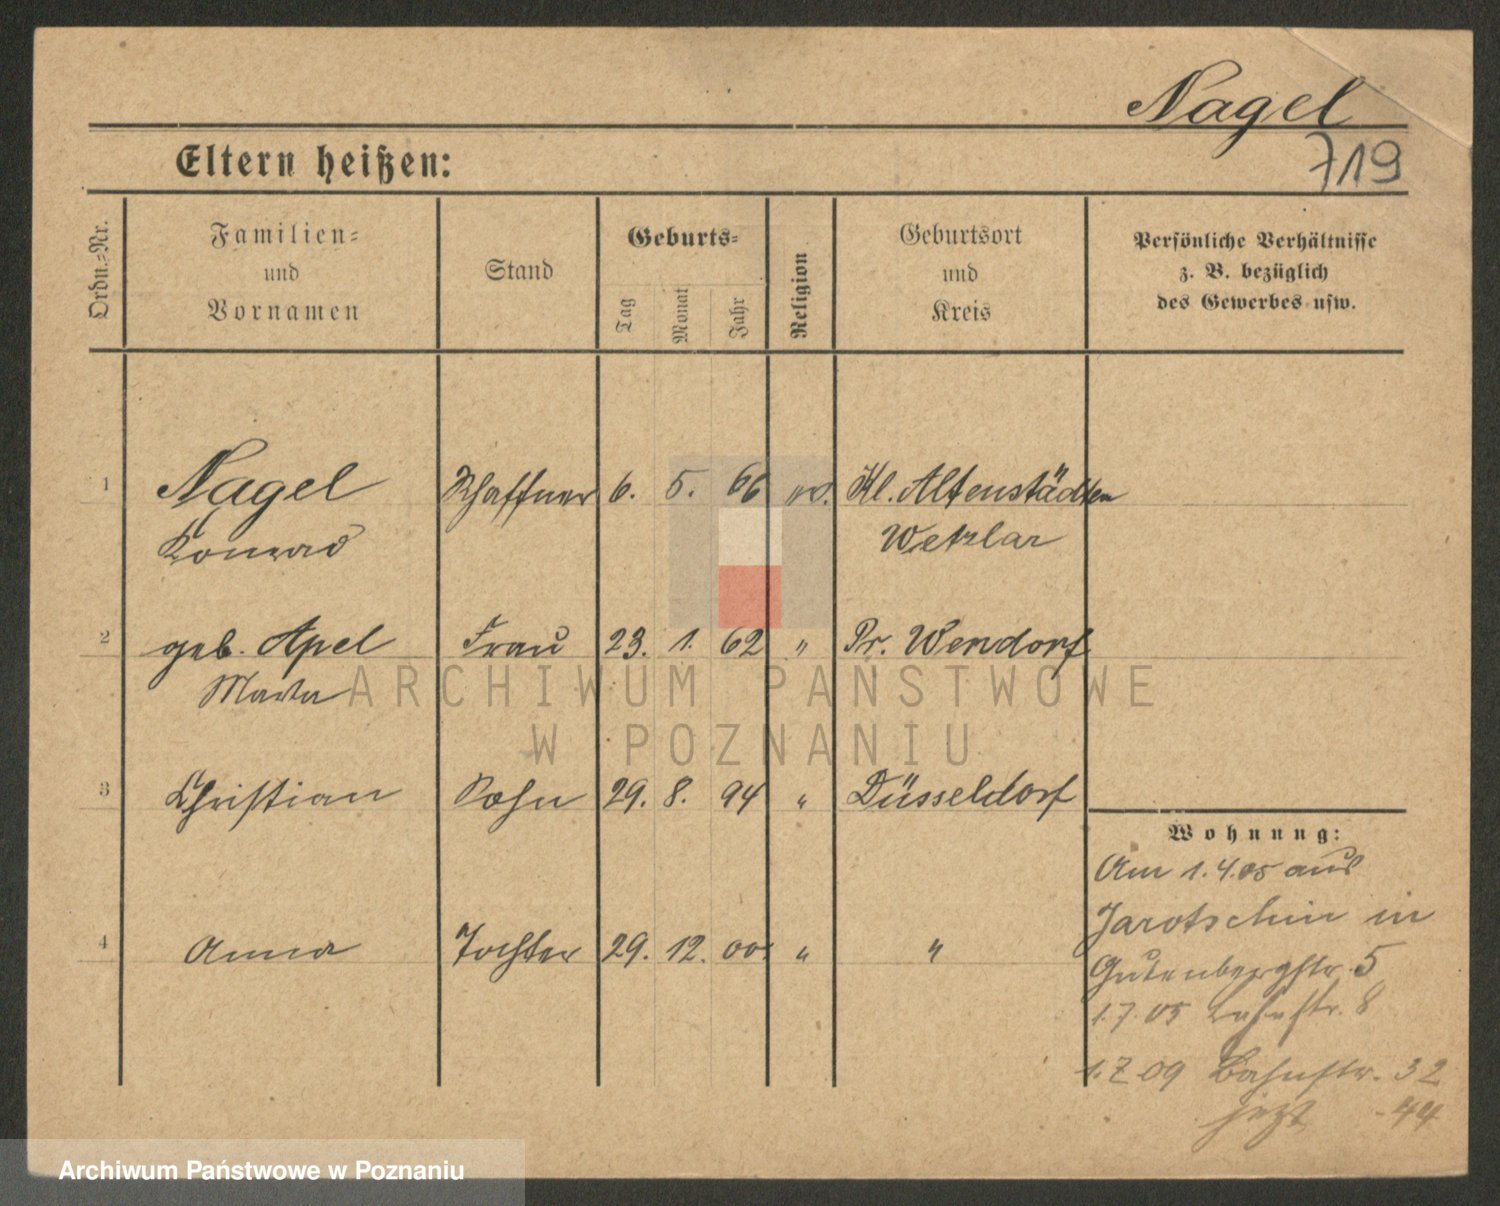 Nagel
719
Eltern heißen:
Ordn.-Nr.
Familien-
und
Vornamen
Stand
Geburts-
Tag
Monat
Jahr
Religion
Geburtsort
und
Kreis
Persönliche Verhältnisse
z. B. bezüglich
des Gewerbes usw.
1 Nagel Schaffner 6. 5. 66 ev. Kl. Altenstädten
Konrad Wetzlar
2 geb. Apel Frau 23. 1. 62 " Pr. Wendorf
Marta
3 Christian Sohn 29. 8. 94 " Düsseldorf
Wohnung:
Am 1.4.05 aus
Jarotschin in
4 Anna Tochter 29. 12. 00. " "
Gutenbergstr. 5
1.7.05 Bahnstr. 8
1.7.09 Bahnstr. 32
jetzt - 44
ARCHIWUM PAŃSTWOWE
W POZNANIU
Archiwum Państwowe w Poznaniu